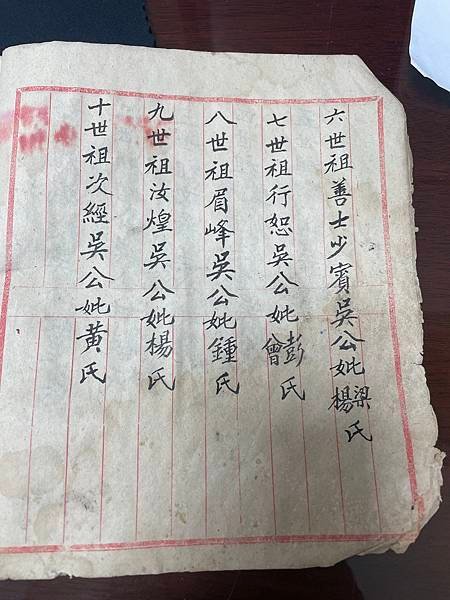 六世祖善士少賓吳公妣梁楊氏
七世祖行恕吳公妣彭曾氏
八世祖眉峰吳公妣鍾氏
九世祖汝煌吳公妣楊氏
十世祖次經吳公妣黃氏